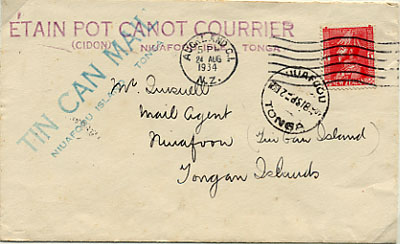 ÉTAIN POT CANOT COURRIER
(CIDON) NIUAFOOU ISL TONGA
TIN CAN MAIL
NIUAFOOU ISLAND TONGA
AUCKLAND C.1
5 PM
24 AUG
1934
N.Z.
NIUAFOOU
TONGA
Mr. Quensell
Mail Agent
Niuafoou (Tin Can Island)
Tongan Islands